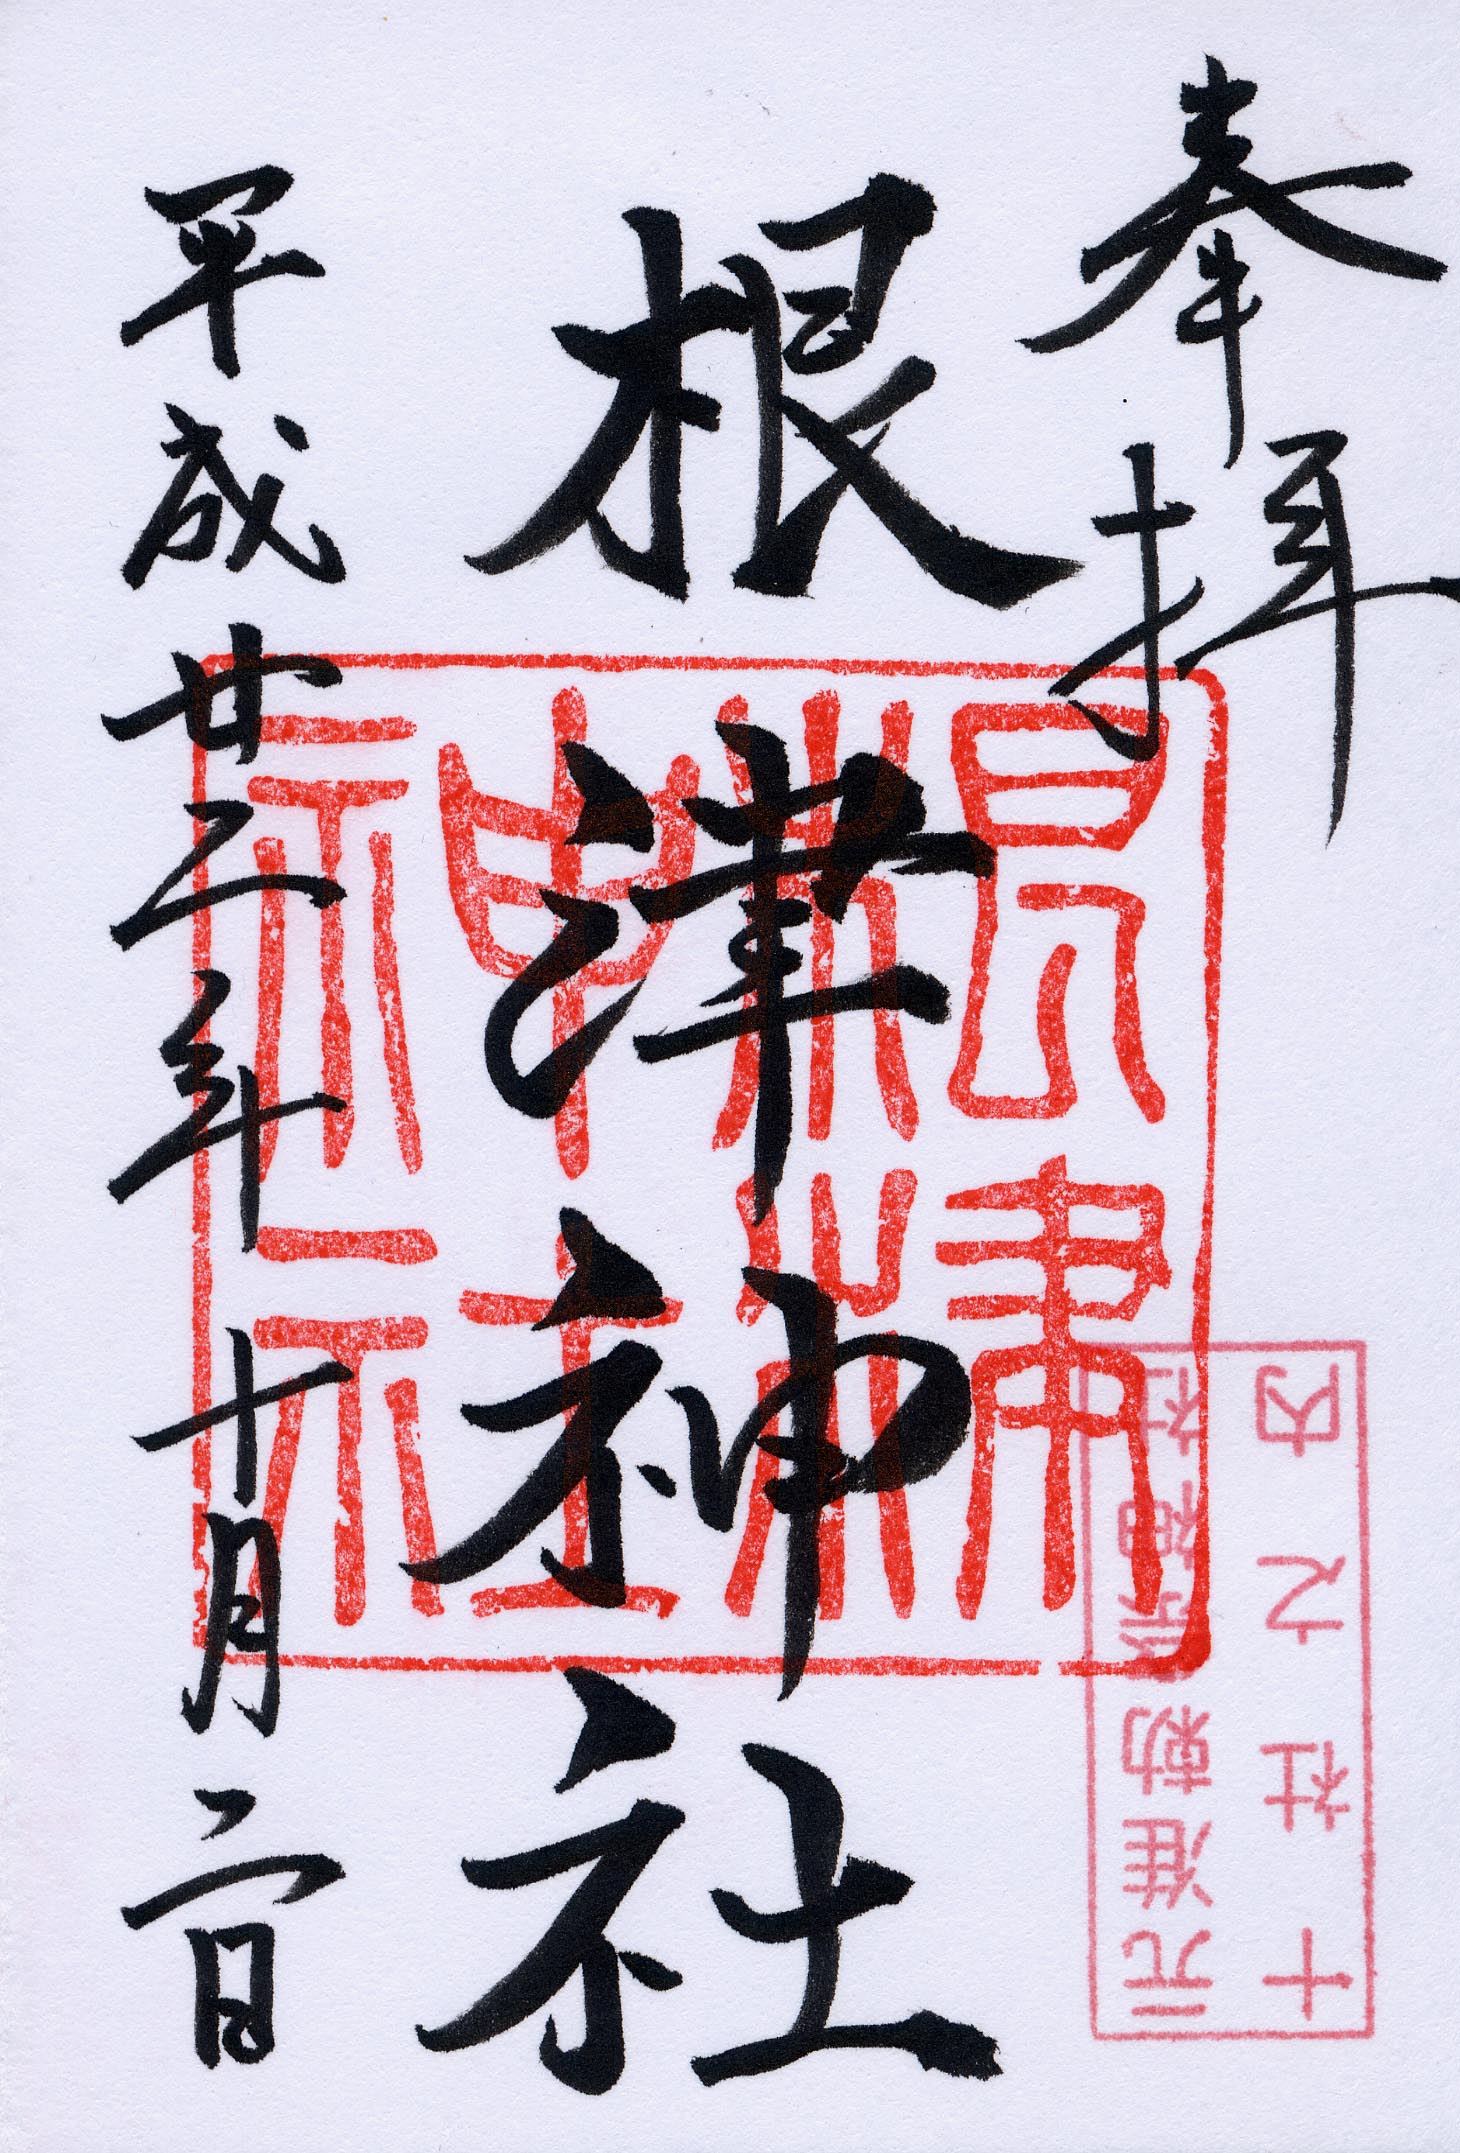 奉拝
根津神社
平成廿二年十月二日
根津神社
元准勅祭神社
十社之内